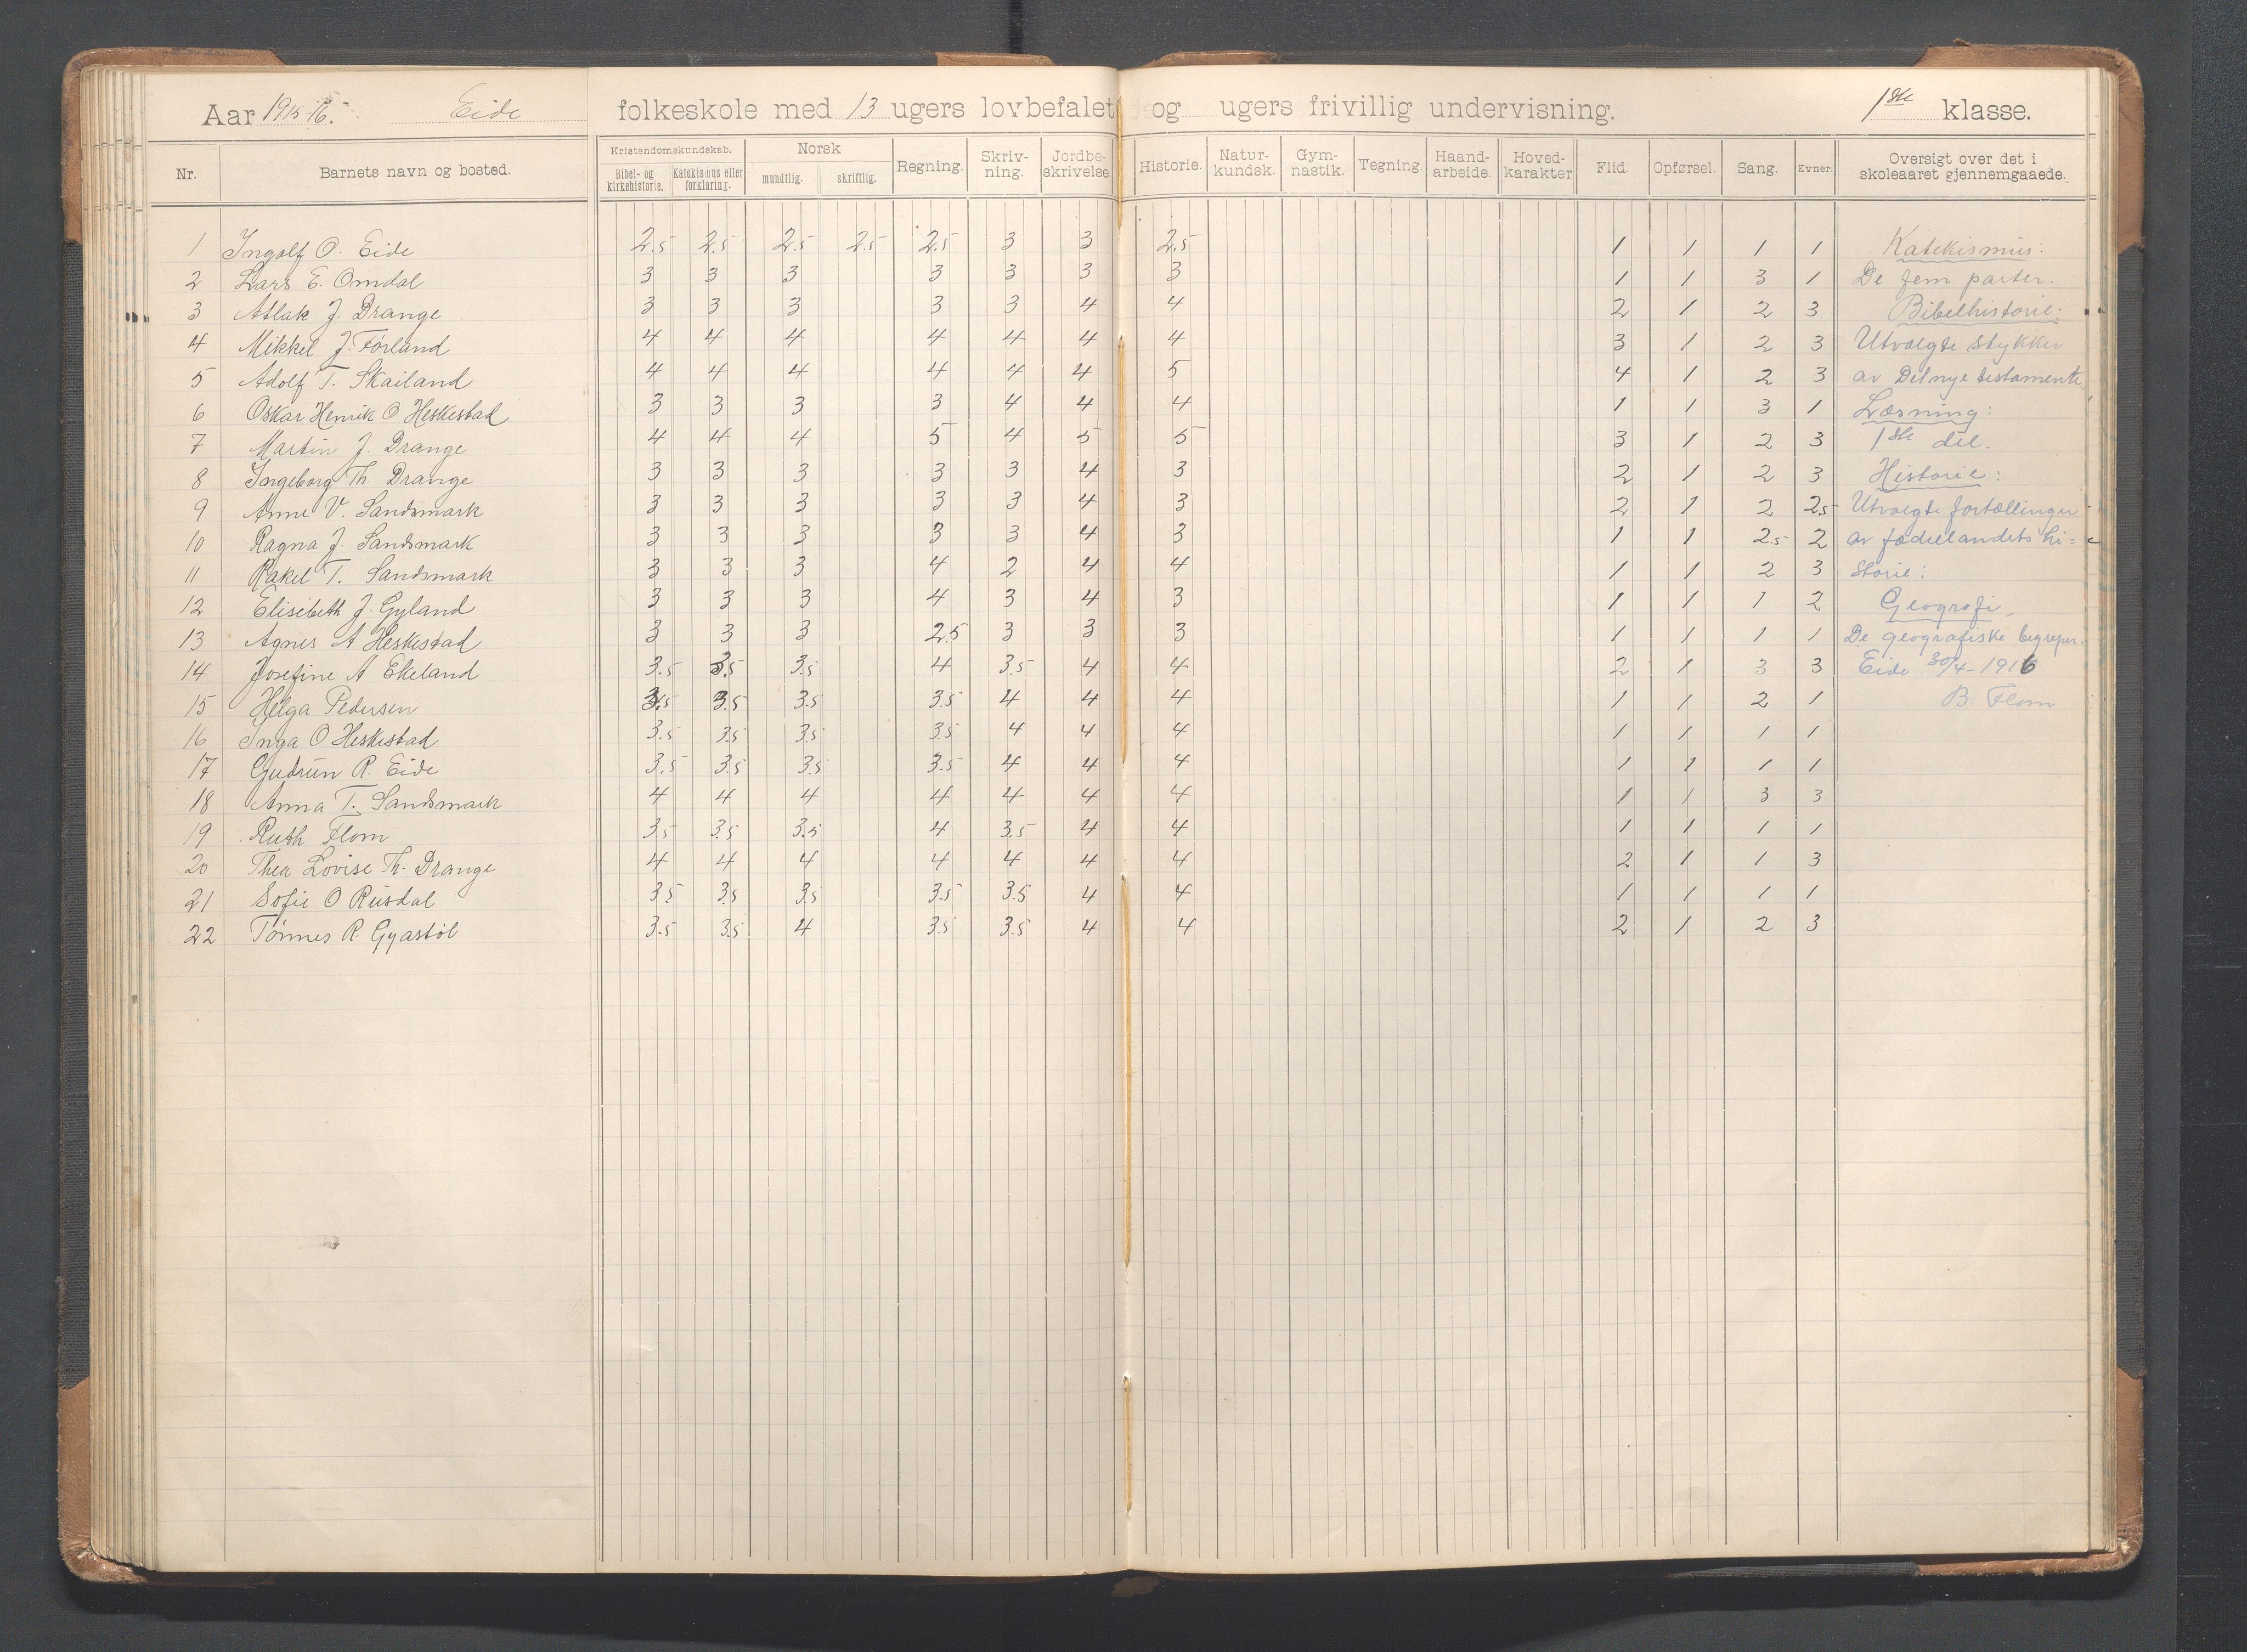 Aar 1915-16. Eide folkeskole med 13 ugers lovbefalet og ugers frivillig undervisning. 1ste klasse.
Nr. Barnets navn og bosted. Kristendomskundskab. Bibel- og kirkehistorie. Katekismus eller forklaring. Norsk mundtlig. skriftlig. Regning. Skriv-ning. Jordbe-skrivelse. Historie. Natur-kundsk. Gym-nastik. Tegning. Haand-arbeide. Hoved-karakter Flid. Opførsel. Sang. Evner. Oversigt over det i skoleaaret gjennemgaaede.
1 Ingolf O. Eide 2.5 2.5 2.5 2.5 2.5 3 3 2.5 1 1 1 1 Katekismus:
2 Lars E. Omdal 3 3 3 3 3 3 3 1 1 3 1 De fem parter.
3 Atlak J. Drange 3 3 3 3 3 4 4 2 1 2 3 Bibelhistorie:
4 Mikkel J. Førland 4 4 4 4 4 4 4 3 1 2 3 Utvalgte stykker
5 Adolf T. Skailand 4 4 4 4 4 4 5 4 1 2 3 av Det nye testamente
6 Oskar Henrik O Heskestad 3 3 3 3 4 4 4 1 1 3 1 Læsning:
7 Martin J. Drange 4 4 4 5 4 5 5 3 1 2 3 1ste del.
8 Ingeborg Th. Drange 3 3 3 3 3 4 3 2 1 2 3 Historie:
9 Anne V. Sandsmark 3 3 3 3 3 4 3 2 1 2 2.5 Utvalgte fortællinger
10 Ragna J. Sandsmark 3 3 3 3 3 4 3 1 1 2.5 2 av fædrelandets hi=
11 Rakel T. Sandsmark 3 3 3 4 2 4 4 1 1 2 3 storie:
12 Elisebeth J. Gyland 3 3 3 4 3 4 3 1 1 1 2 Geografi,
13 Agnes A Heskestad 3 3 3 2.5 3 3 3 1 1 1 1 De geografiske begreper.
14 Josefine A Ekeland 3.5 3.5 3.5 4 3.5 4 4 2 1 3 3 Eide 30/4-1916
15 Helga Pedersen 3.5 3.5 3.5 3.5 4 4 4 1 1 2 1 B. Flom
16 Inga O Heskestad 3.5 3.5 3.5 3.5 4 4 4 1 1 1 1
17 Gudrun R. Eide 3.5 3.5 3.5 3.5 4 4 4 1 1 1 1
18 Anna T. Sandsmark 4 4 4 4 4 4 4 1 1 3 3
19 Ruth Flom 3.5 3.5 3.5 4 3.5 4 4 1 1 1 1
20 Thea Lovise Th. Drange 4 4 4 4 4 4 4 2 1 1 3
21 Sofie O Rusdal 3.5 3.5 3.5 3.5 3.5 4 4 1 1 1 1
22 Tønnes R. Gyastøl 3.5 3.5 4 3.5 3.5 4 4 2 1 2 3